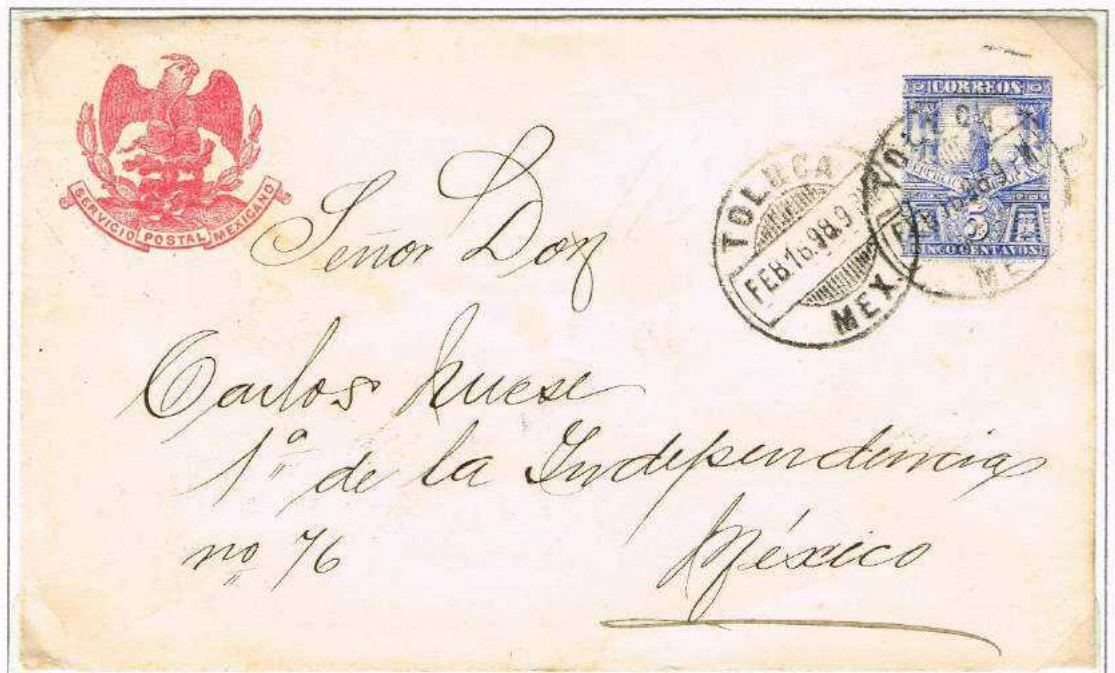 SERVICIO POSTAL MEXICANO
CORREOS
5
CINCO CENTAVOS
TOLUCA
FEB.16.98.9
MEX.
MEX
Señor Don
Carlos
1ª de la Independencia
no 76
México